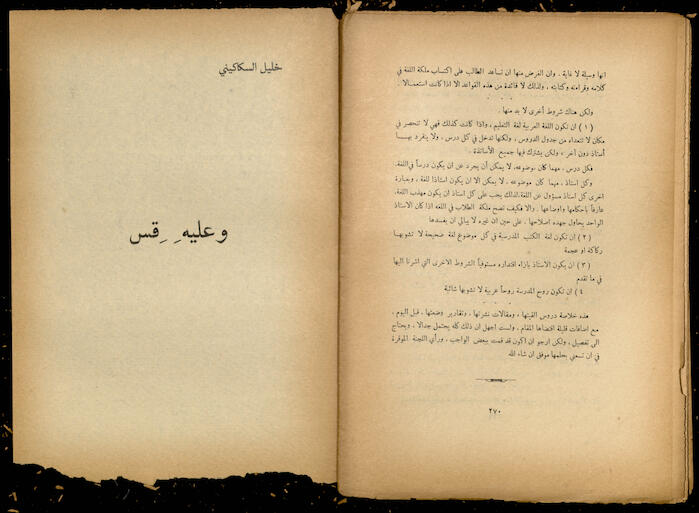 انها وسيلة لا غاية . وان الغرض منها ان تساعد الطالب على اكتساب ملكة اللغة في
كلامه وقراءته وكتابته ، ولذلك لا فائدة من هذه القواعد الا اذا كانت استعمالا .
. . .
ولكن هناك شروط أخرى لا بد منها .
( ١ ) ان تكون اللغة العربية لغة التعليم ، واذا كانت كذلك فهي لا تنحصر في
مكان لا تتعداه من جدول الدروس ، ولكنها تدخل في كل درس ، ولا ينفرد بهـا
أستاذ دون آخر ، ولكن يشترك فيها جميع الأساتذة .
فكل درس ، مهما كان موضوعه، لا يمكن أن يجرد عن ان يكون درساً في اللغة.
وكل استاذ ، مهما كان موضوعه ، لا يمكن الا ان يكون استاذا للغة ، وبعبارة
اخرى كل استاذ مسؤول عن اللغة.لذلك يجب على كل استاذ ان يكون مهذب اللغة،
عارفاً باحكامها واوضاعها . والا فكيف تصح ملكة الطلاب في اللغة اذا كان الاستاذ
الواحد يحاول جهده اصلاحها ، على حين ان غيره لا يبالي ان يفسدها
( ٢ ) ان تكون لغة الكتب المدرسية في كل موضوع لغة صحيحة لا تشوبهـا
ركاكة او عجمة
( ٣ ) ان يكون الاستاذ بازاء اقتداره مستوفياً الشروط الاخرى التي اشرنا اليها
في ما تقدم
٤ ) ان تكون روح المدرسة روحاً عربية لا تشوبها شائبة
. . .
هذه خلاصة دروس القيتها ، ومقالات نشرتها ، وتقارير وضعتها ، قبل اليوم ،
مع اضافات قليلة اقتضاها المقام . ولست اجهل ان ذلك كله يحتمل جدالا ، ويحتاج
الى تفصيل ، ولكن ارجو ان اكون قد قمت ببعض الواجب . ورأي اللجنة الموقرة
في ان تسعى بحلمها موفق ان شاء الله
٢٧٠
خليل السكاكيني
وعليهِ ِقس